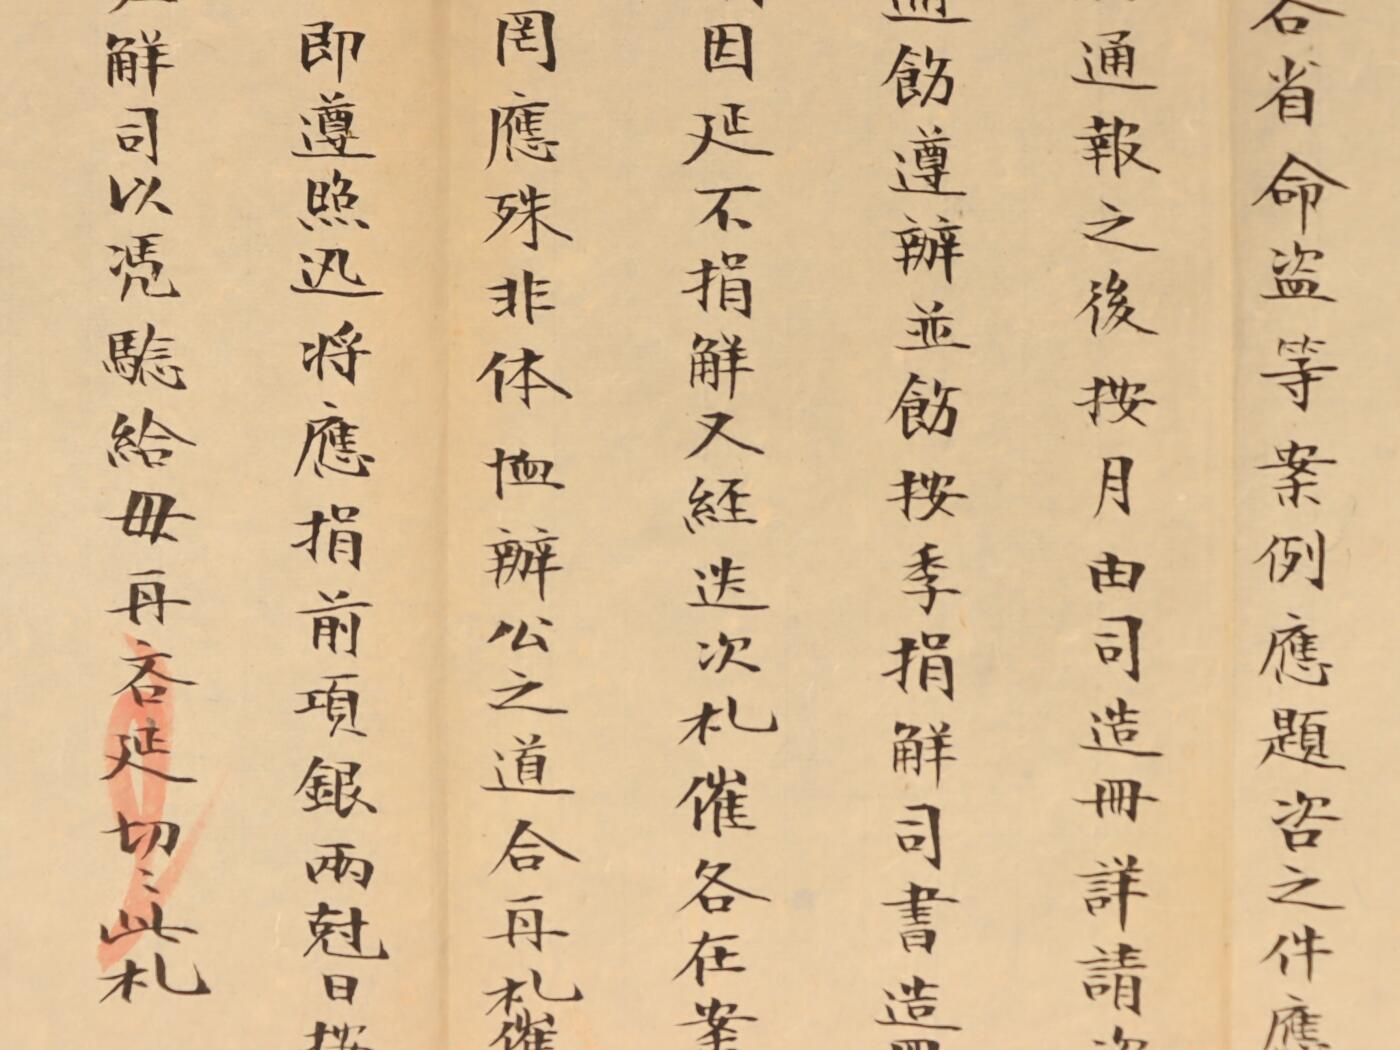 省命盗等案例應題咨之件應
通報之後按月由司造冊詳請咨
飭遵辦並飭按季捐解司書造冊
因延不捐解又經迭次札催各在案
罔應殊非体恤辦公之道合再札催
即遵照迅将應捐前項銀兩尅日按
解司以凭騐給毋再吝延切〻此札